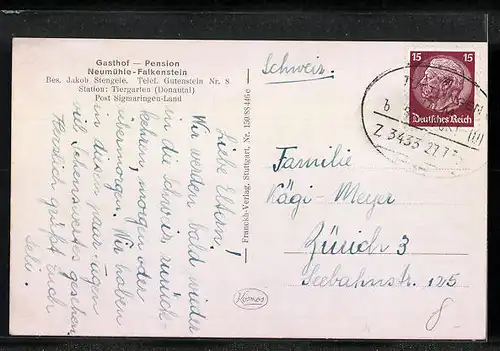 Gasthof — Pension
Neumühle-Falkenstein
Bes. Jakob Stengele. Telef. Gutenstein Nr. 8
Station: Tiergarten (Donautal)
Post Sigmaringen-Land
Liebe Eltern!
Wir werden bald wieder
in die Schweiz zurück-
kehren, morgen oder
übermorgen. Wir haben
in diesen paar Tagen
viel Sehenswertes gesehen.
Herzlich grüßt Euch
Franckh-Verlag, Stuttgart, Nr. 150/88446e
Kosmos
Schweiz.
15 15
Deutsches Reich
b
Z 3435 27.7.
Familie
Kägi-Meyer
Zürich 3
Seebahnstr. 125